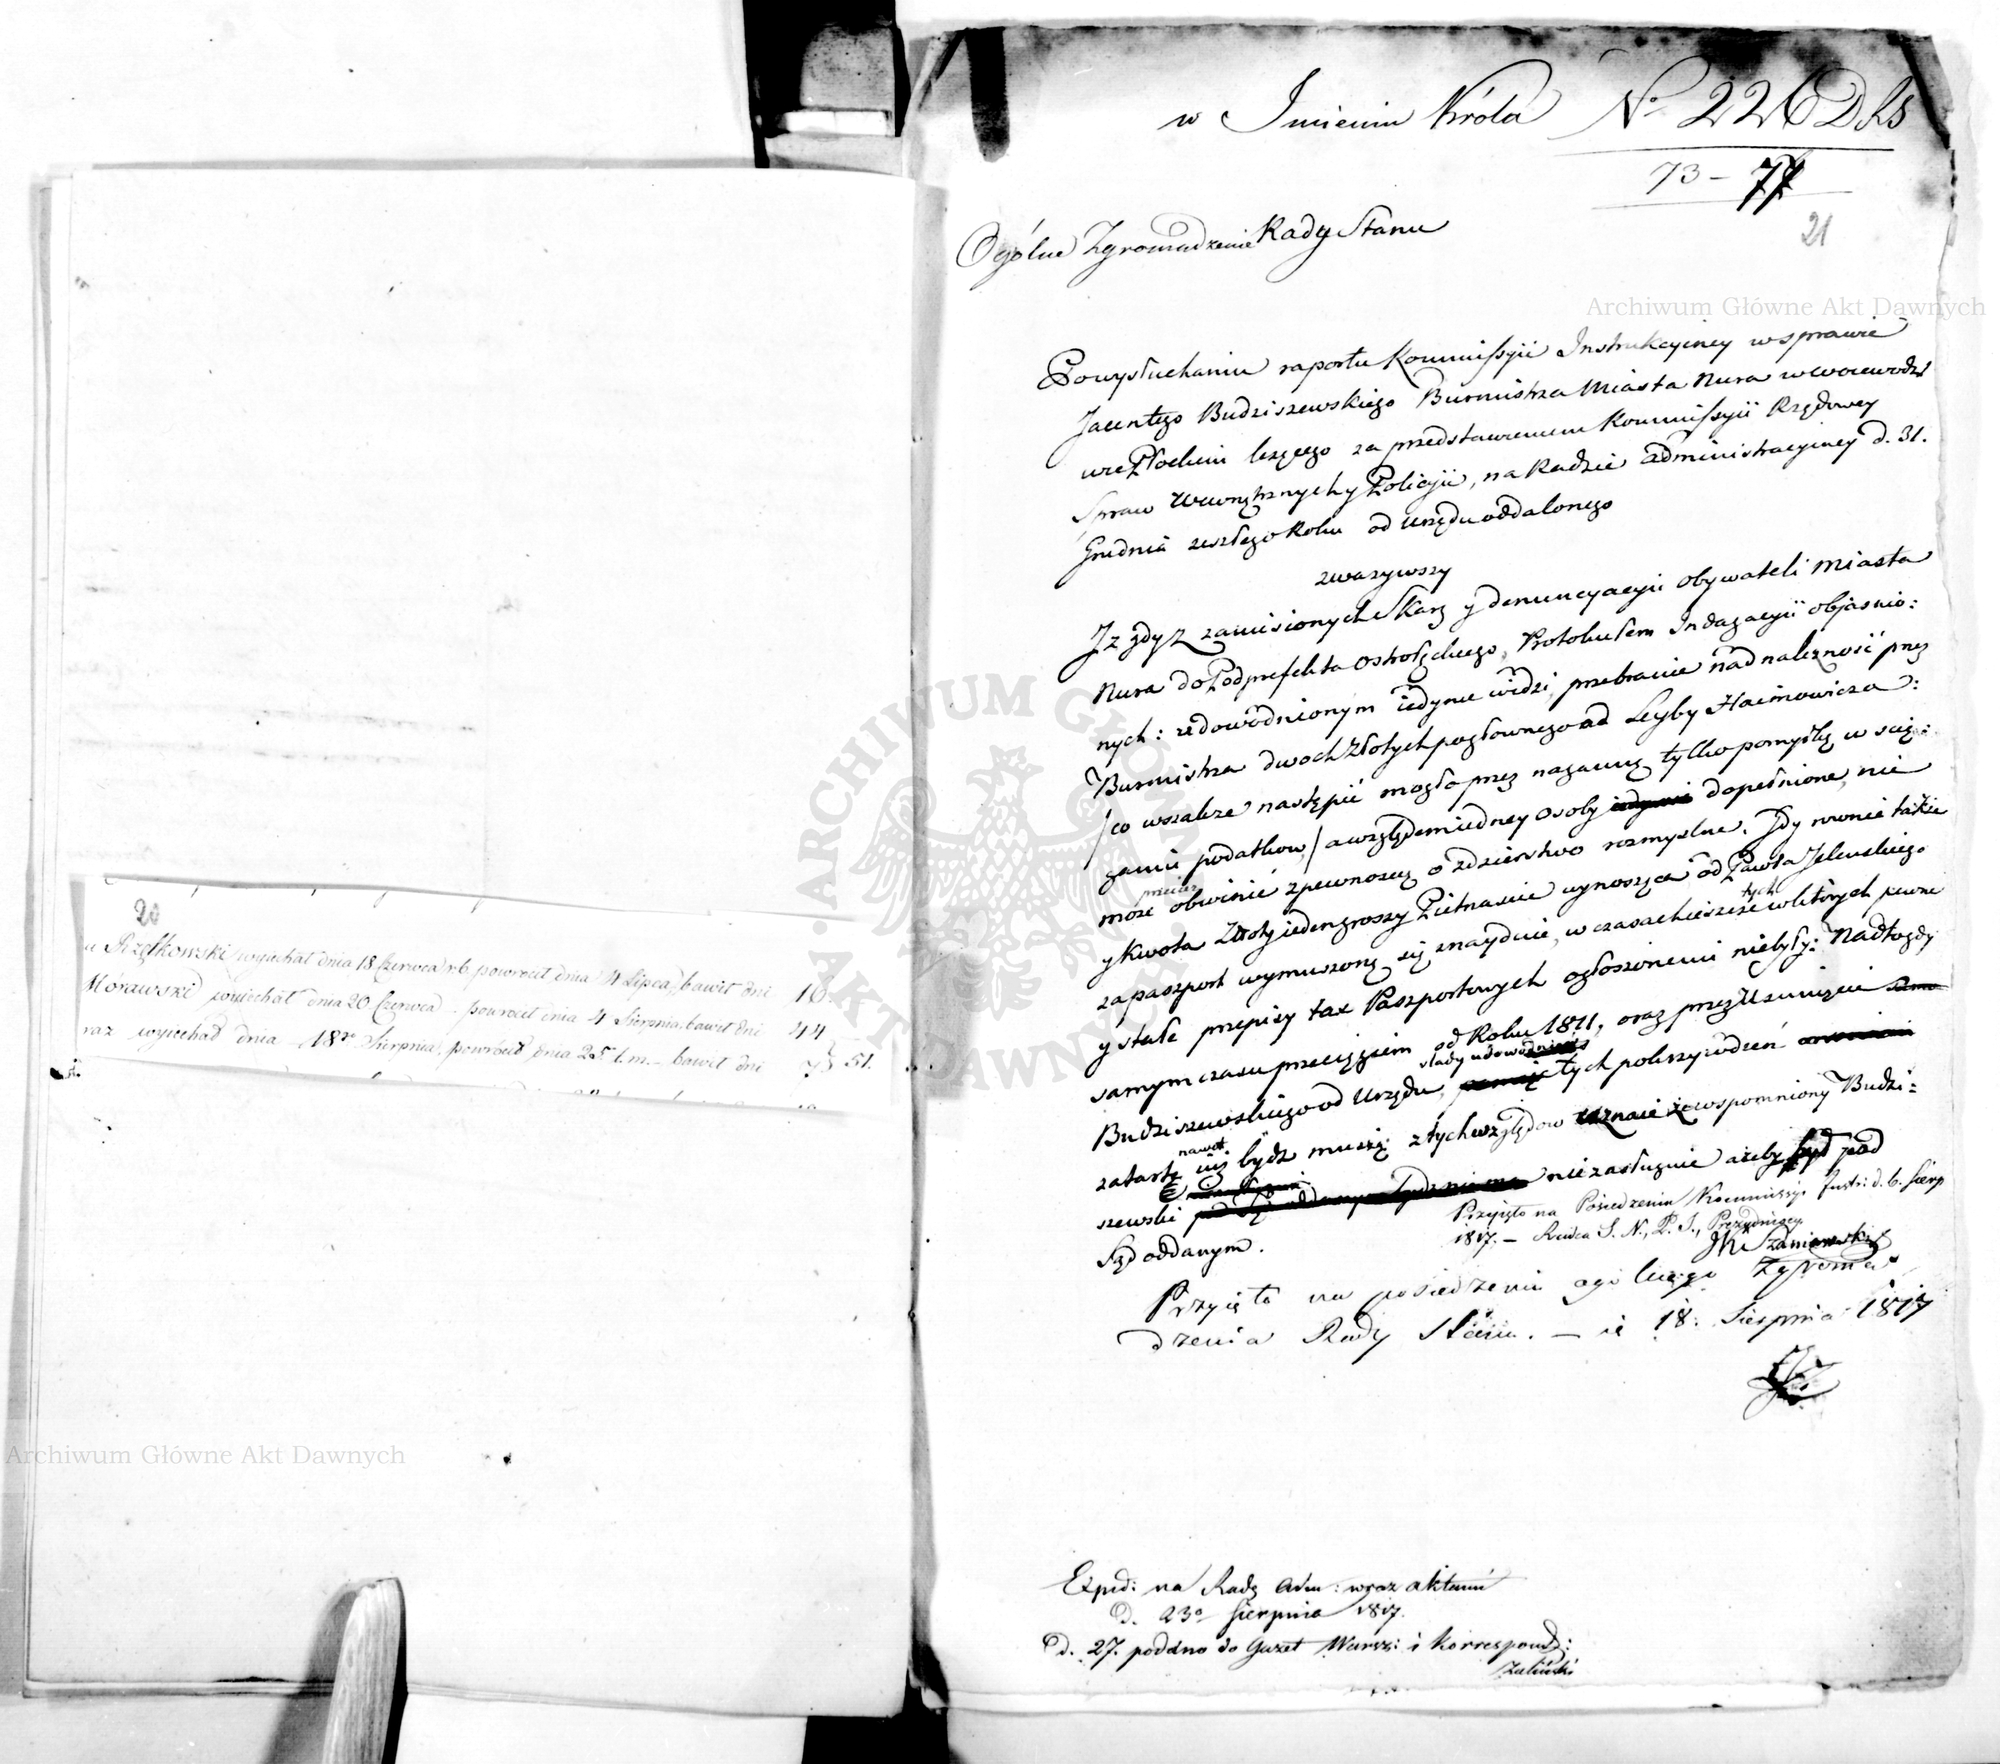 20
Rzętkowski wyiechał dnia 18 Czerwca r.b. powrócił dnia 4 Lipca, bawił dni 16
Mórawski wyiechał dnia 20 Czerwca powrócił dnia 4 Sierpnia. bawił dni 44
raz wyiechał dnia 18go Sierpnia, powrócił dnia 25 t.m. bawił dni 7 } 51.
w Imieniu Króla No 226 DRS
73 – 77
21
Ogólne Zgromadzenie Rady Stanu
Po wysłuchaniu raportu Kommissyii Instrukcyiney w sprawie
Jacentego Budziszewskiego Burmistrza Miasta Nura w Woiewodz:
wie Płockim leżącego za przedstawieniem Kommissyii Rządowey
Spraw Wewnętrznych y Policyii, na Radzie Administracyiney d. 31.
Grudnia zeszłego Roku od Urzędu oddalonego
zważywszy
Iż gdy z zaniesionych Skarg y denuncyacyii obywateli Miasta
Nura do Podprefekta Ostrołęckiego, Protokułem Indagacyii obiaśnio:
nych: udowodnionym iedynie widzi przebranie nad należność przez
Burmistrza dwoch Złotych pogłownego od Leyby Haimowicza:
/co wszakże nastąpić mogło przez naganną tylko pomyłkę w scią:
ganiu podatkow/ a względem iedney osoby dopełnione, nie
może przecież obwinić z pewnością o zdzierstwo rozmyslne. Gdy rownie także
y kwota Złoty ieden groszy Piętnaście wynosząca od Pawła Jeleńskiego
za paszport wymuszoną się znayduie, w czasach ieszcze tych w których pewne
y stałe przepisy tax Paszportowych ogłoszonemi niebyły: Nadto gdy
samym czasu przeciągiem od Roku 1811, oraz przez Usunięcie
Budziszewskiego od Urzędu, slady udowodnienia tych pokrzywdzeń
zatarte nawet iuż bydź muszą: z tych względow uznaie że wspomniony Budzi:
szewski niezasługuie ażeby był pod
Sąd oddanym.
Przyięto na Posiedzeniu Kommissyi Instr: d. 6. Sierp
1817. – Radca S. N., P. I., Prezyduiący
Szaniawski
Przyięto na posiedzeniu ogólnego Zgroma
dzenia Rady Stanu. – d. 18. Sierpnia 1817
Exped: na Radę Adm: wraz aktami
D. 23o Sierpnia 1817.
D. 27. podano do Gazet Warsz: i Korrespond:
Zaliński
Archiwum Główne Akt Dawnych
Archiwum Główne Akt Dawnych
ARCHIWUM GŁÓWNE AKT DAWNYCH